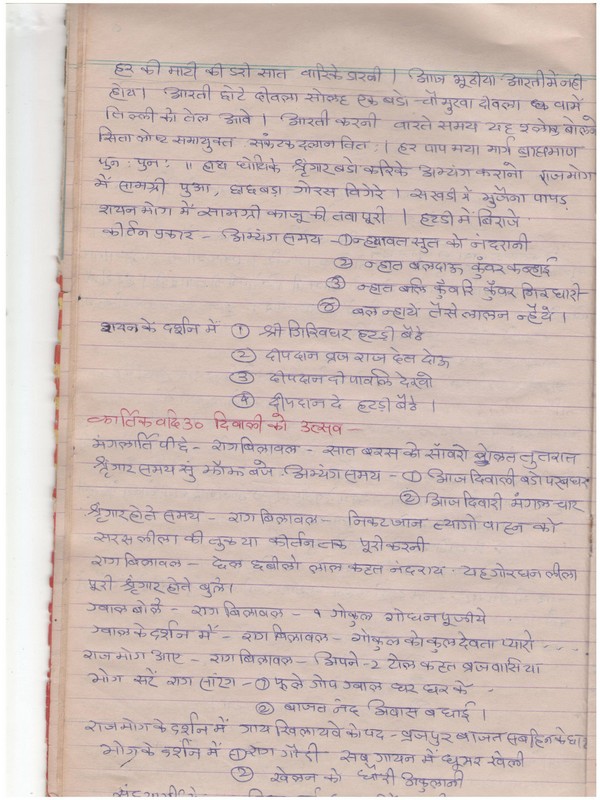 हर की माटी की डरी सात वारिके डारनी । आज भूठीया आरती में नही
होय । आरती छोटे दीवला सोलह एक बडो चौमुखा दीवला वामें
तिल्ली को तेल आवे । आरती करनी वारते समय यह श्लोक बोलनो
सिता लोष्ट समायुक्त संकटक दलान वितः । हर पाप मया मार्ग भ्राम्यमाण
पुनः पुनः ॥ हाथ धोयिके श्रृंगार बडो करिके अभ्यंग करानो राजभोग
में सामग्री पुआ, छाछबडा गोरस विगेरे । सखडी में भुजेना पापड
शयन भोग में सामग्री काजू की तवापूरी । हटडी में बिराजे
कीर्तन प्रकार - अभ्यंग समय - ① न्हवावत सुत को नंदरानी
② न्हात बलदाऊ कुँवर कन्हाई
③ न्हात बलि कुँवरि कुँवर गिरधारी
④ बल न्हाये तैसे लालन न्हैये ।
शयन के दर्शन में ① श्री गिरिवधर हटडी बैठे
② दीपदान व्रजराज देत दोऊ
③ दीपदान दीपावलि देखो
④ दीपदान दे हटडी बैठे ।
कार्तिक वदि 30 दिवाली को उत्सव -
मंगलार्ति पीछे - राग बिलावल - सात बरस को साँवरो बोलत तुतरात
श्रृंगार समय सुं झांझ बजे अभ्यंग समय - ① आज दिवाली बडो परब घर
② आज दिवारी मंगल चार
श्रृंगार होते समय - राग बिलावल - निकट जान त्यागो वाहन को
सरस लीला की तुक या कीर्तन तक पूरी करनी
राग बिलावल - छैल छबीलो लाल कहत नंदराय - यह गोरधन लीला
पूरी श्रृंगार होते बुले ।
ग्वाल बोले - राग बिलावल - १ गोकुल गोधन पूजीये
ग्वाल के दर्शन में - राग बिलावल - गोकुल को कुल देवता प्यारो
राजभोग आए - राग बिलावल - अपने - २ टोल कहत व्रजवासिया
भोग सरें राग सारंग - ① फूले गोप ग्वाल घर घर के
② बाजत नंद अवास बधाई ।
राजभोग के दर्शन में गाय खिलायवे को पद - व्रजपुर बाजत सबहिन के घर
भोग के दर्शन में ① राग गौडी सब गायन में धूमर खेली
② खेलन को धौरी अकुलानी